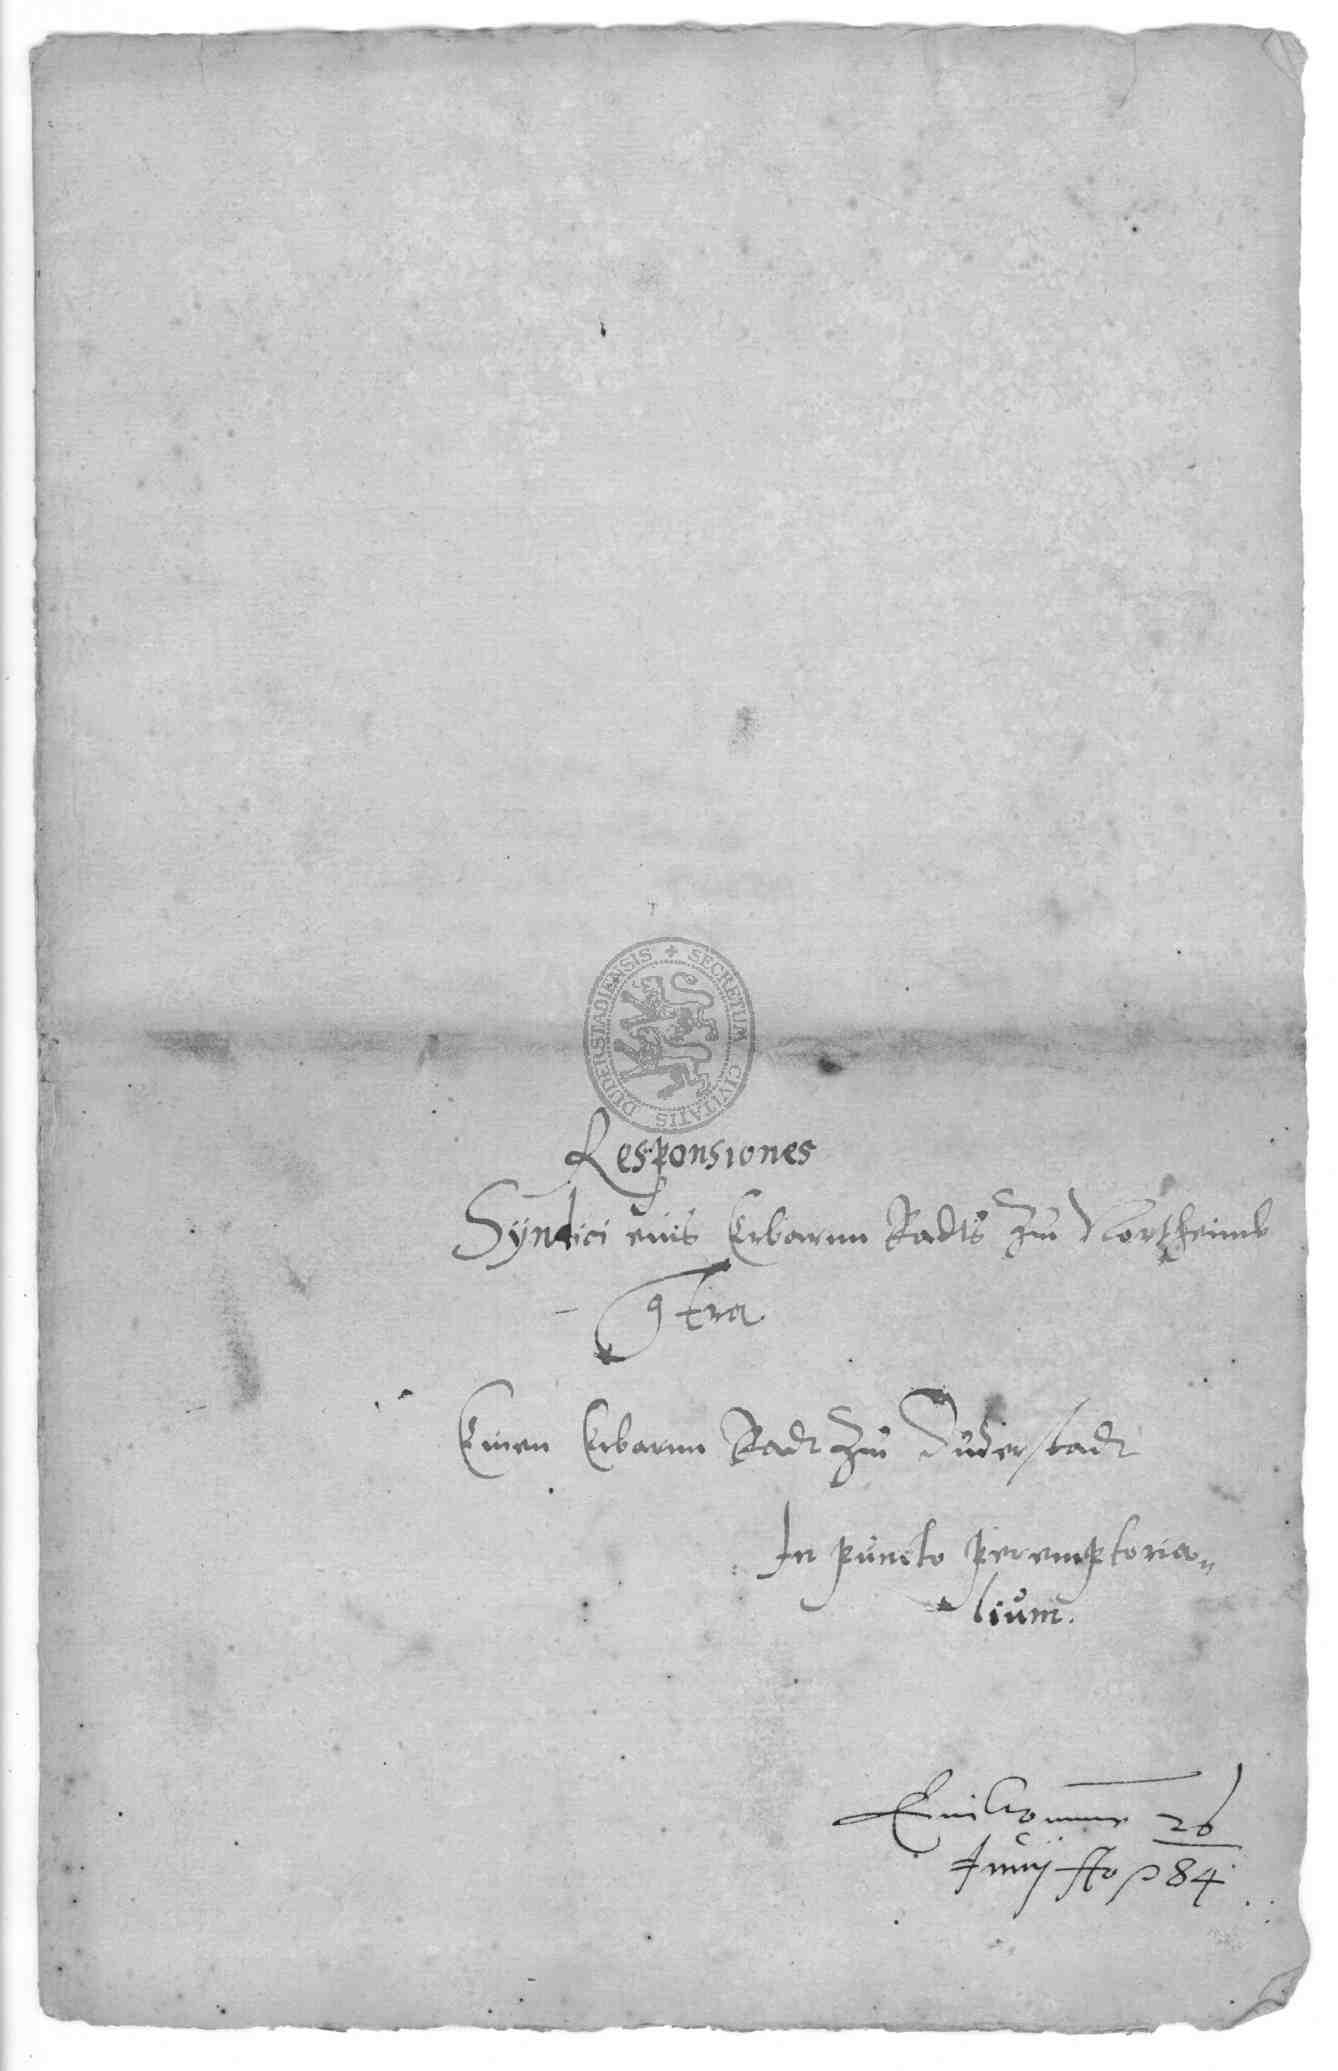 SECRETUM CIVITATIS DUDERSTADIENSIS
Responsiones
Syndici eins Erbarnn Radts Zu Northeimb
9tra
Einen Erbarnn Radt Zu Duderstadt
In puncto peremptoria„
lium.
Einkomme 26
Junij Ao 84